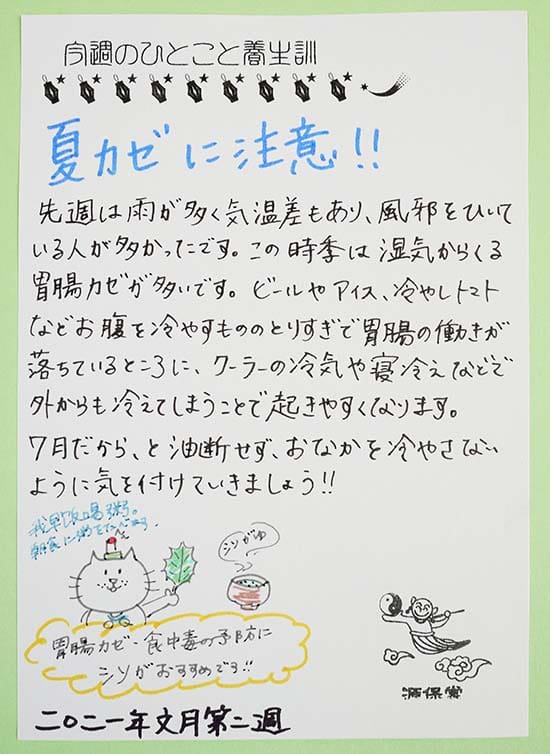 今週のひとこと養生訓
夏カゼに注意!!
先週は雨が多く気温差もあり、風邪をひいて
いる人が多かったです。この時季は湿気からくる
胃腸カゼが多いです。ビールやアイス、冷やしトマト
などお腹を冷やすもののとりすぎで胃腸の働きが
落ちているところに、クーラーの冷気や寝冷えなどで
外からも冷えてしまうことで起きやすくなります。
7月だから、と油断せず、おなかを冷やさない
ように気を付けていきましょう!!
我早飯喝粥。
朝食に粥をたべます.
シソがゆ
胃腸カゼ・食中毒の予防に
シソがおすすめです!!
源保堂
二〇二一年文月第二週